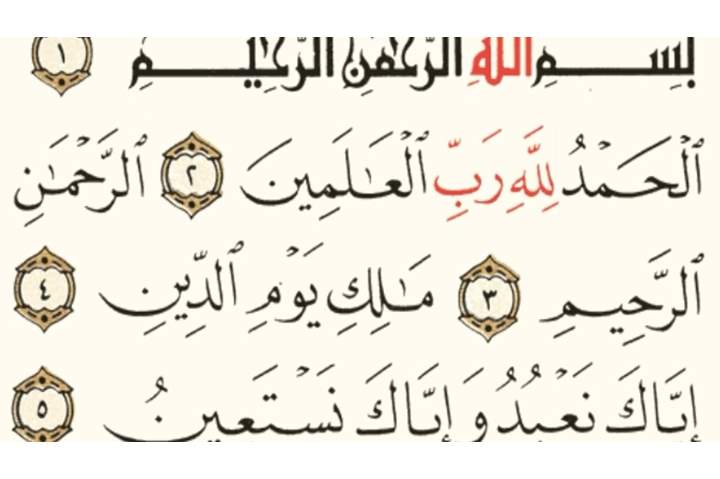 بِسْمِ اللَّهِ الرَّحْمَٰنِ الرَّحِيمِ ١
ٱلْحَمْدُ لِلَّهِ رَبِّ ٱلْعَٰلَمِينَ ٢ ٱلرَّحْمَٰنِ
ٱلرَّحِيمِ ٣ مَٰلِكِ يَوْمِ ٱلدِّينِ ٤
إِيَّاكَ نَعْبُدُ وَإِيَّاكَ نَسْتَعِينُ ٥